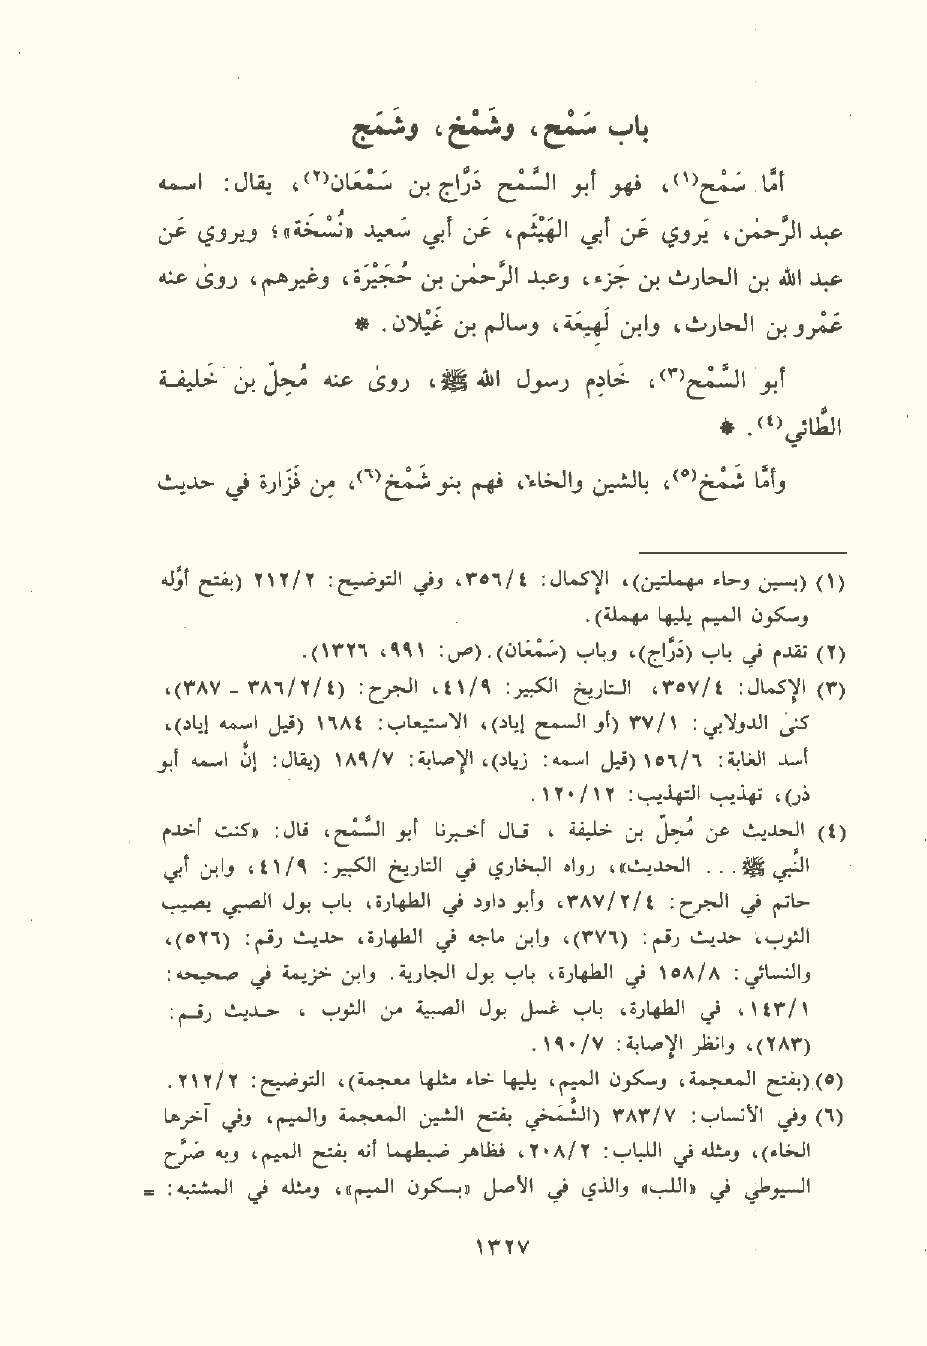 باب سَمْح، وشَمْخ، وشَمَج
أمّا سَمْح(١)، فهو أبو السَّمْح دَرَّاج بن سَمْعَان(٢)، يقال: اسمه
عبد الرحمٰن، يَروي عن أبي الهَيْثَم، عن أبي سَعيد «نُسْخَة»؛ ويروي عن
عبد الله بن الحارث بن جَزء، وعبد الرحمٰن بن حُجَيْرَة، وغيرهم، روىٰ عنه
عَمْرو بن الحارث، وابن لَهِيعَة، وسالم بن غَيْلان. *
أبو السَّمْح(٣)، خَادِم رسول الله ﷺ، روىٰ عنه مُحِلّ بن خَليفة
الطَّائي(٤). *
وأمّا شَمْخ(٥)، بالشين والخاء، فهم بنو شَمْخ(٦)، مِن فَزَارة في حديث
(١) (بسين وحاء مهملتين)، الإكمال: ٣٥٦/٤، وفي التوضيح: ٢١٢/٢ (بفتح أوّله
وسكون الميم يليها مهملة).
(٢) تقدم في باب (دَرّاج)، وباب (سَمْعَان). (ص: ٩٩١، ١٣٢٦).
(٣) الإكمال: ٣٥٧/٤، التاريخ الكبير: ٤١/٩، الجرح: (٣٨٦/٢/٤ - ٣٨٧)،
كنىٰ الدولابي: ٣٧/١ (أو السمح إياد)، الاستيعاب: ١٦٨٤ (قيل اسمه إياد)،
أسد الغابة: ١٥٦/٦ (قيل اسمه: زياد)، الإصابة: ١٨٩/٧ (يقال: إنّ اسمه أبو
ذر)، تهذيب التهذيب: ١٢٠/١٢.
(٤) الحديث عن مُحِلّ بن خليفة ، قال أخبرنا أبو السَّمْح، قال: «كنت أخدم
النَّبي ﷺ... الحديث»، رواه البخاري في التاريخ الكبير: ٤١/٩، وابن أبي
حاتم في الجرح: ٣٨٧/٢/٤، وأبو داود في الطهارة، باب بول الصبي يصيب
الثوب، حديث رقم: (٣٧٦)، وابن ماجه في الطهارة، حديث رقم: (٥٢٦)،
والنسائي: ١٥٨/٨ في الطهارة، باب بول الجارية. وابن خزيمة في صحيحه:
١٤٣/١، في الطهارة، باب غسل بول الصبية من الثوب ، حديث رقم:
(٢٨٣)، وانظر الإصابة: ١٩٠/٧.
(٥) (بفتح المعجمة، وسكون الميم، يليها خاء مثلها معجمة)، التوضيح: ٢١٢/٢.
(٦) وفي الأنساب: ٣٨٣/٧ (الشَّمَخي بفتح الشين المعجمة والميم، وفي آخرها
الخاء)، ومثله في اللباب: ٢٠٨/٢، فظاهر ضبطهما أنه بفتح الميم، وبه صَرَّح
السيوطي في «اللب» والذي في الأصل «بسكون الميم»، ومثله في المشتبه: =
١٣٢٧